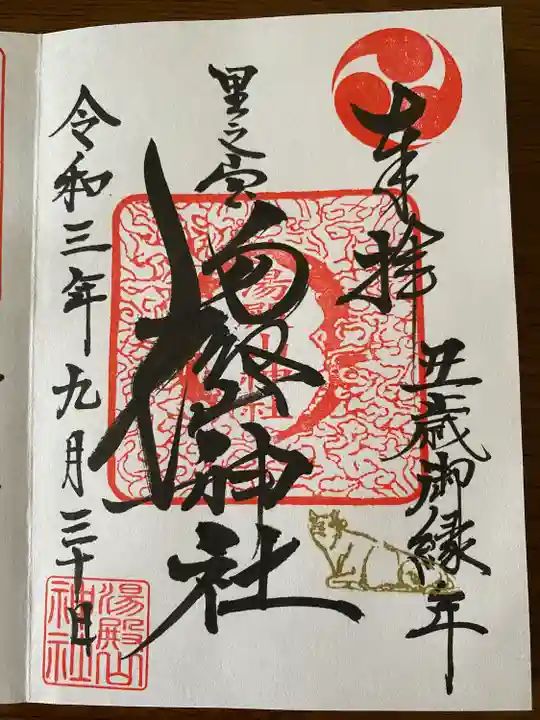 奉拝
丑歳御縁年
里之宮
湯殿山神社
令和三年九月三十日
湯殿山
神社